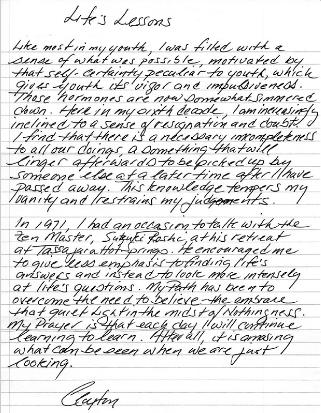 Life's Lessons
Like most in my youth, I was filled with a
sense of what was possible, motivated by
that self-certainty peculiar to youth, which
gives youth its vigor and impulsiveness.
Those hormones are now somewhat simmered
down. Here in my sixth decade, I am increasingly
inclined to a sense of resignation and doubt.
I find that there is a necessary incompleteness
to all our doings, a something that will
linger afterwards to be picked up by
someone else at a later time after I have
passed away. This knowledge tempers my
vanity and restrains my judgements.
In 1971, I had an occasion to talk with the
Zen Master, Suzuki Roshi, at his retreat
at Tassajara Hot Springs. He encouraged me
to give less emphasis to finding life's
answers and instead to look more intensely
at life's questions. My path has been to
overcome the need to believe the embrace
that quiet Light in the midst of Nothingness.
My Prayer is that each day I will continue
learning to learn. After all, it is amazing
what can be seen when we are just
looking.
Clayton